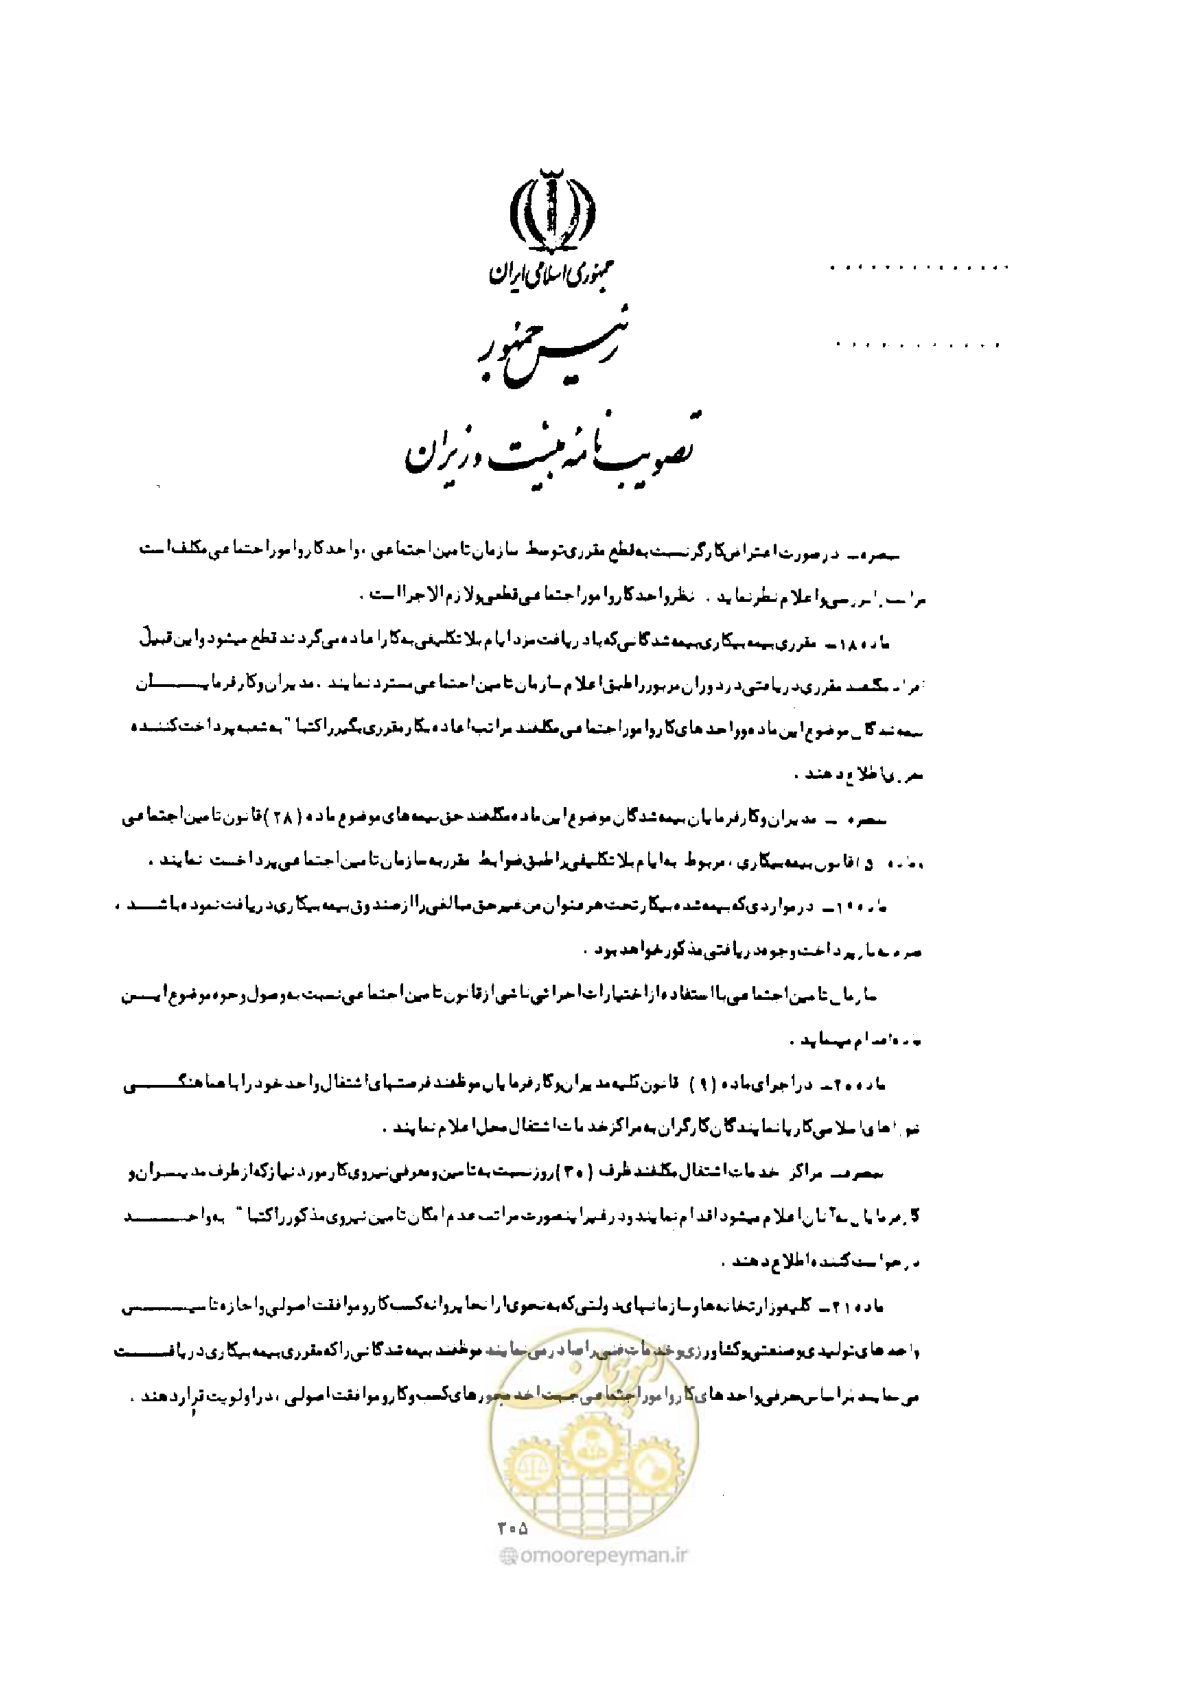 جمهوری اسلامی ایران
رئیس جمهور
تصویب نامه هیئت وزیران
تبصره ـ در صورت اعتراض کارگر نسبت به قطع مقرری توسط سازمان تامین اجتماعی ، واحد کار و امور اجتماعی مکلف است
مراتب را بررسی و اعلام نظر نماید . نظر واحد کار و امور اجتماعی قطعی و لازم الاجرا است .
ماده ۱۸ ـ مقرری بیمه بیکاری بیمه شدگانی که با دریافت مزد ایام بلاتکلیفی به کار اعاده می گردند قطع میشود و این قبیل
افراد مکلفند مقرری دریافتی در دوران مزبور را طبق اعلام سازمان تامین اجتماعی مسترد نمایند . مدیران و کارفرمایـــــان
بیمه شدگان موضوع این ماده و واحدهای کار و امور اجتماعی مکلفند مراتب اعاده بکار مقرری بگیر را کتبا" به شعبه پرداخت کننده
مقرری اطلاع دهند .
تبصره ـ مدیران و کارفرمایان بیمه شدگان موضوع این ماده مکلفند حق بیمه های موضوع ماده (۲۸) قانون تامین اجتماعی
و ماده ۵ قانون بیمه بیکاری ، مربوط به ایام بلاتکلیفی را طبق ضوابط مقرر به سازمان تامین اجتماعی پرداخت نمایند .
ماده ۱۹ ـ در مواردی که بیمه شده بیکار تحت هر عنوان من غیر حق مبالغی را از صندوق بیمه بیکاری دریافت نموده باشـــد ،
مجبور به باز پرداخت وجوه دریافتی مذکور خواهد بود .
سازمان تامین اجتماعی با استفاده از اختیارات اجرائی ناشی از قانون تامین اجتماعی نسبت به وصول وجوه موضوع ایـــن
ماده اقدام مینماید .
ماده ۲۰ ـ در اجرای ماده (۹) قانون کلیه مدیران و کارفرمایان موظفند فرصتهای اشتغال واحد خود را با هماهنگـــــی
شوراهای اسلامی کار یا نمایندگان کارگران به مراکز خدمات اشتغال محل اعلام نمایند .
تبصره ـ مراکز خدمات اشتغال مکلفند ظرف (۳۰) روز نسبت به تامین و معرفی نیروی کار مورد نیاز که از طرف مدیـــران و
کارفرمایان به آنان اعلام میشود اقدام نمایند و در غیر اینصورت مراتب عدم امکان تامین نیروی مذکور را کتبا" به واحـــــد
درخواست کننده اطلاع دهند .
ماده ۲۱ ـ کلیه وزارتخانه ها و سازمانهای دولتی که به نحوی از انحا پروانه کسب کار و موافقت اصولی و اجازه تاسیـــــس
واحدهای تولیدی و صنعتی و کشاورزی و خدمات فنی را صادر می نمایند موظفند بیمه شدگانی را که مقرری بیمه بیکاری دریافـــت
می نمایند بر اساس معرفی واحدهای کار و امور اجتماعی جهت اخذ مجوزهای کسب و کار و موافقت اصولی ، در اولویت قرار دهند .
امور پیمان
۳۰۵
@omoorepeyman.ir